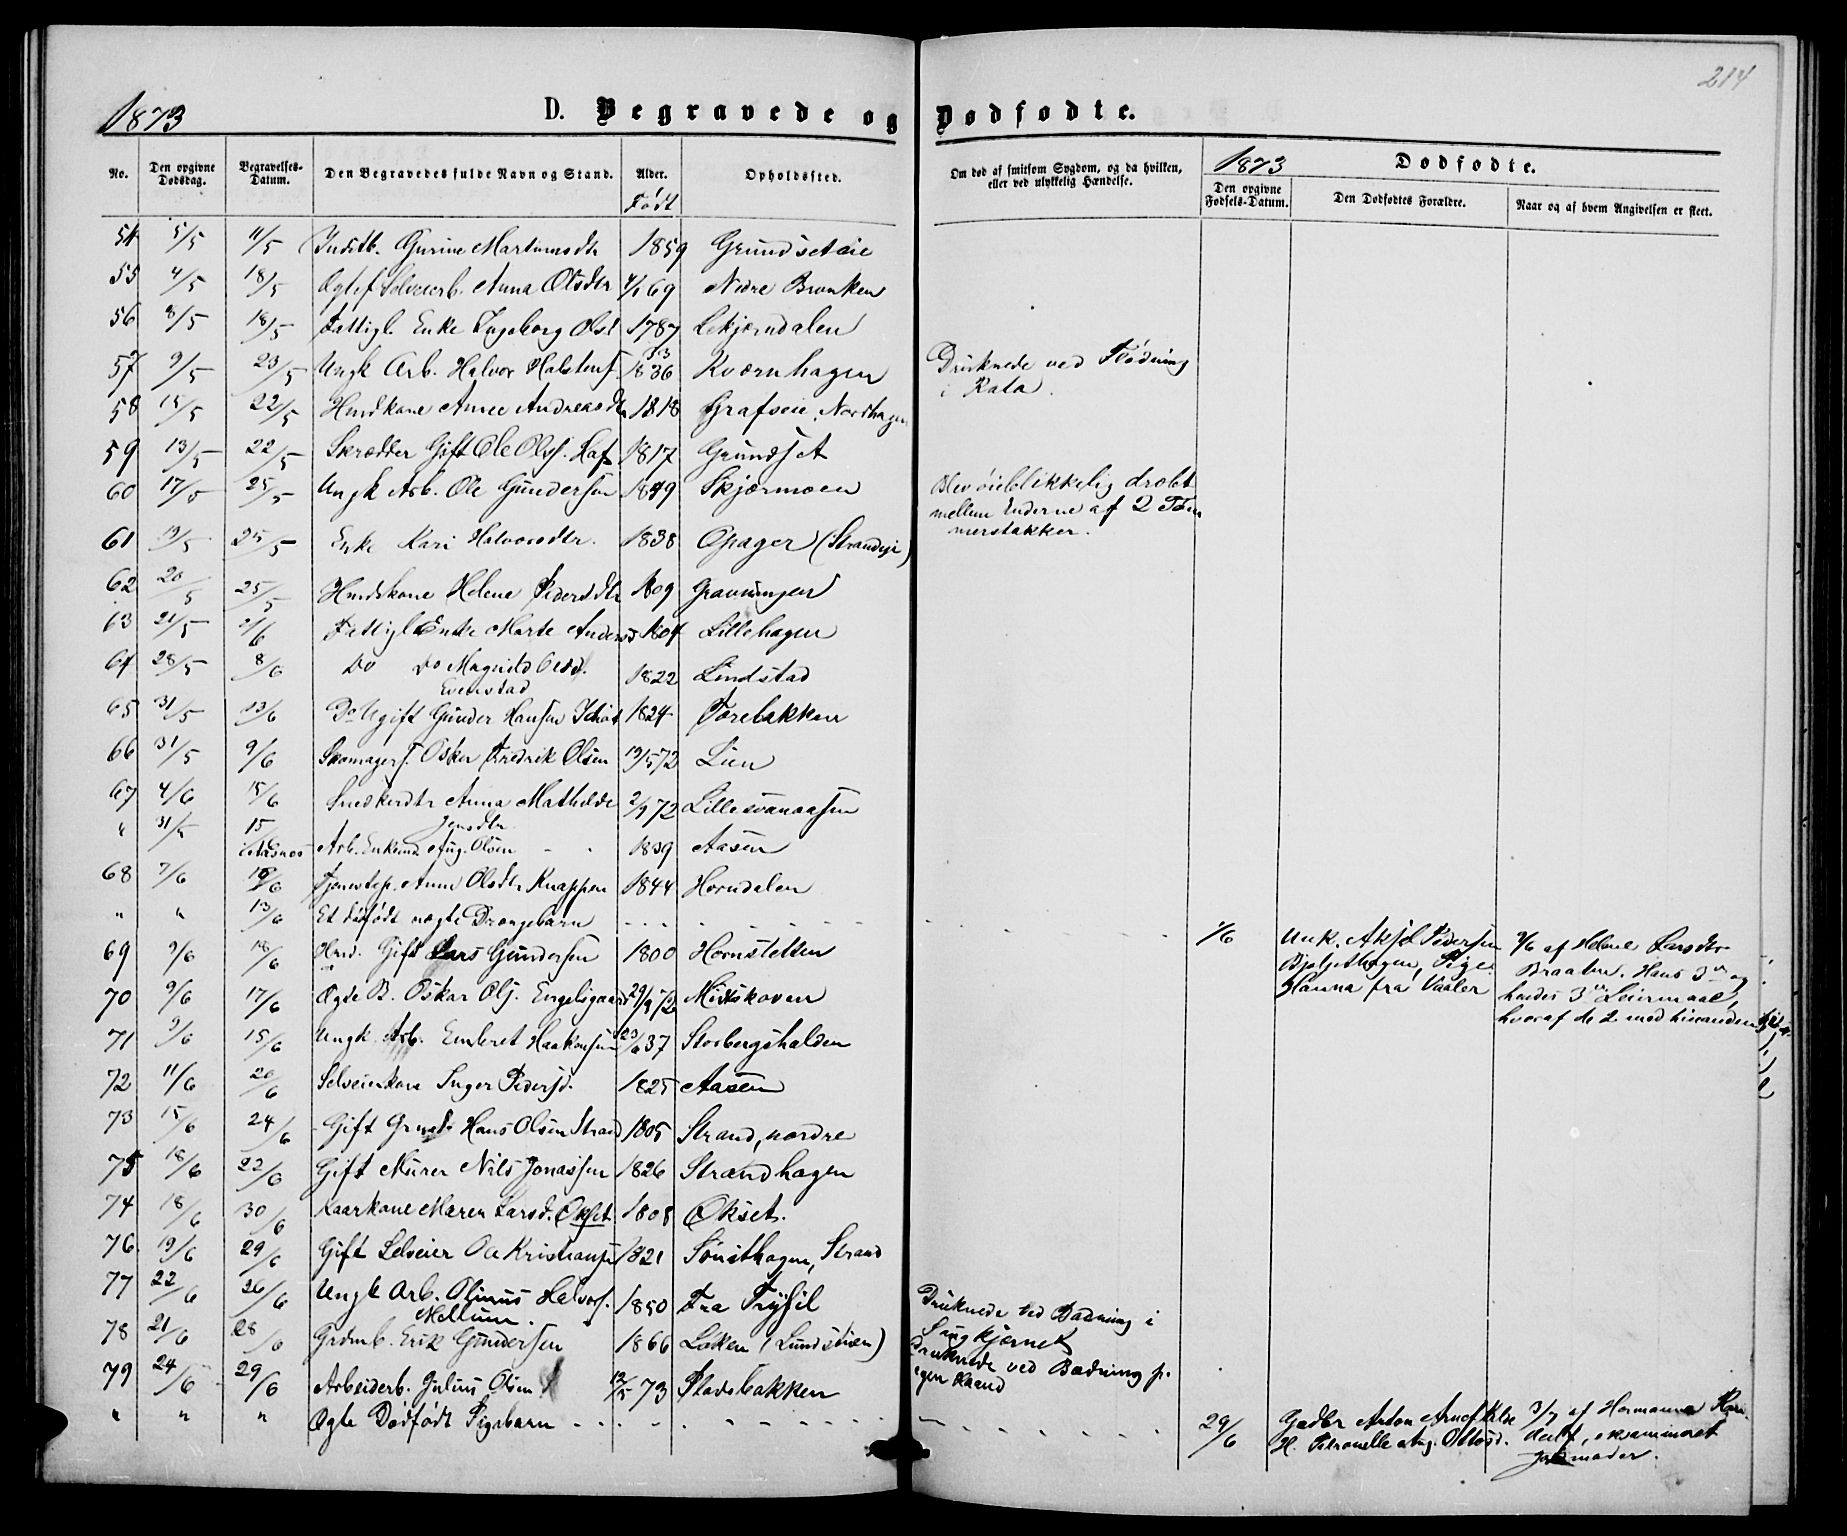 214
1873 D. Begravede og Dødfødte.
No. Den opgivne Dødsdag. Begravelses-Datum. Den Begravedes fulde Navn og Stand. Alder. Født Opholdssted. Om død af smitsom Sygdom, og da hvilken, eller ved ulykkelig Hændelse. 1873 Dødfødte. Den opgivne Fødsels-Datum. Den Dødfødtes Forældre. Naar og af hvem Angivelsen er skeet.
54 5/5 11/5 Gurine Martinusdtr 1859 Grundsetøie
55 4/5 18/5 Selveierb. Anna Olsdtr 69 Nedre Brænken
56 8/5 18/5 Fattigl Enke Ingeborg Olsd 1787
57 9/5 23/5 Ungk Arb. Halvor Halstens. 1836 33 Kværnhagen Druknede ved Flødning i Rata.
58 15/5 22/5 Husdkone Anne Andreasdtr 1818 Grafseie, Nordhagen
59 13/5 22/5 Skrædder Gift Ole Ols. Haf 1817 Grundset
60 17/5 25/5 Ungk Arb. Ole Gundersen 1849 Skjærmoen Blev øieblikkelig dræbt
mellem Enderne af 2 Tøm
merstokker.
61 19/5 25/5 Enke Kari Halvorsdtr. 1838 Opager (Strandeje)
62 20/5 25/5 Husdkone Helene Pedersdtr 1809 Gravningen
63 21/5 2/6 Fattigl Enke Marte Andersd 1804 Lillehagen
64 28/5 8/6 Do Do Magnild Olsd. Evenstad 1822 Lindstad
65 31/5 13/6 Do Ugift Gunder Hansen 1824 Torebakken
66 31/5 9/6 Skomagers. Oskar Fredrik Olsen 19/5 72 Lien
67 4/6 15/6 Snedkerdtr Anna Mathilde Jensdtr. 2/9 72 Lillesvenaasen
" 31/5 15/6 Aasnes Arb. Enkemd Aug. Olsen 1839 Aasen
68 7/6 18/6 Tjenestep. Anne Olsdtr Knappen 1844 Horndalen
" " 13/6 Et dødfødt uægte Drengebarn 7/6 Unk. Aksel Pedersen
Bjølsethagen, Pige
Hanna fra Vaaler
9/6 af Helene Larsdtr
Braaten. Hans 3die og
hendes 3die Leiermaal,
hvoraf de 2 med hinanden
69 9/6 18/6 Hmd. Gift Lars Gundersen 1800 Hornsletten
70 9/6 17/6 Ægte B. Oskar Ols. Engelsgaard 29/9 72 Midtskoven
71 9/6 15/6 Ungk. Arb. Embret Haakonsen 23/6 37 Storbergshalden
72 11/6 20/6 Selveierkone Inger Pedersd. 1825 Aasen
73 15/6 24/6 Gift Grmd Hans Olsen Strand 1805 Strand, nordre
75 18/6 22/6 Gift Murer Nils Jonassen 1826 Strandhagen
74 18/6 30/6 Kaarkone Maren Larsd. Økset 1808 Økset.
76 19/6 29/6 Gift Selveier Ole Kristiansen 1821 Strand
77 22/6 26/6 Ungk Arb. Olinus Halvors. Mellum. 1850 Fra Trysil Druknede ved Badning i
78 21/6 28/6 Grdmb. Erik Gundersen 1866 Løken (Lundsøien) Druknede ved Badning p.
egen Haand
79 24/6 29/6 Arbeiderb. Julius Olsen 12/5 73 Stadsbakken
" " " Ægte Dødfødt Pigebarn 29/6 Gadbr Anton
H. Petronelle Aug. Olsd.
3/7 af Hermanna
examineret
Jordmoder.